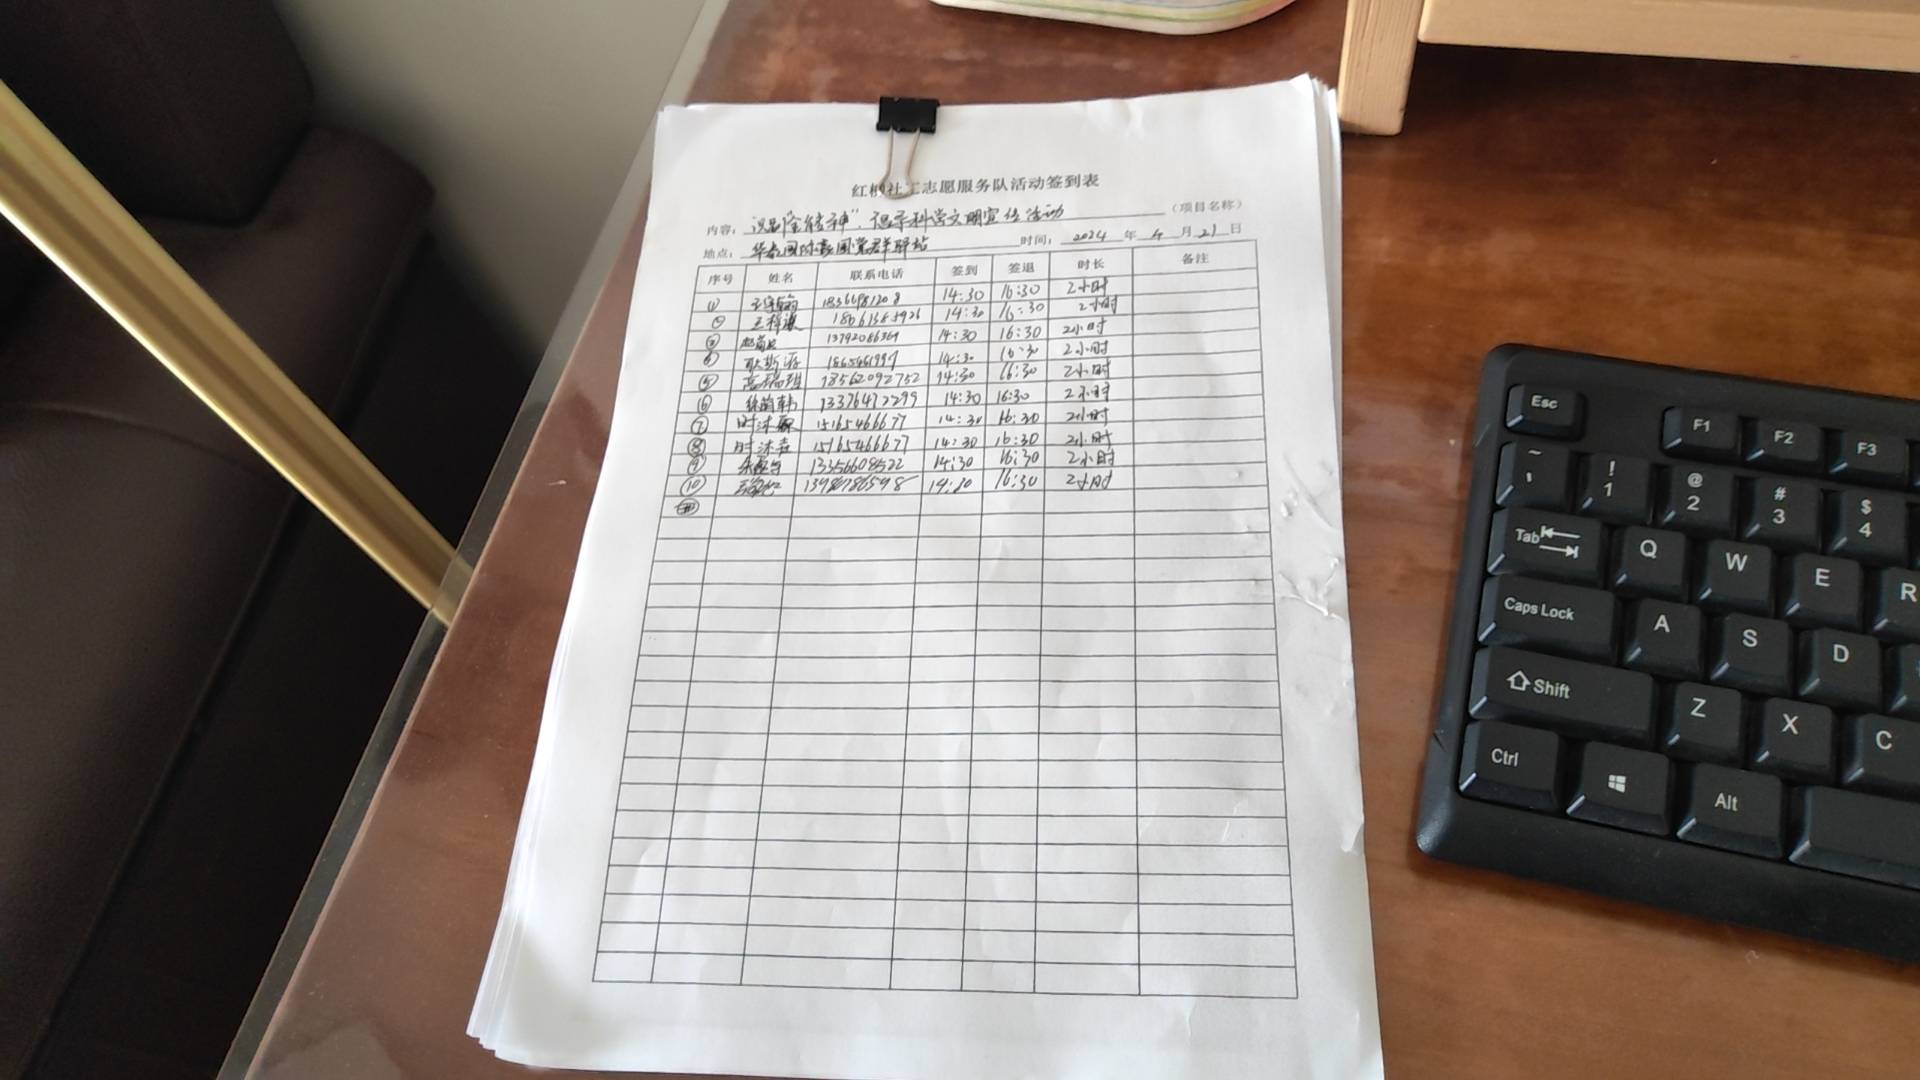 红 社工志愿服务队活动签到表
内容：识别"全能神"，倡导科学文明宣传活动 （项目名称）
地点：华春国际嘉园党群驿站 时间：2024 年 4 月 21 日
序号 姓名 联系电话 签到 签退 时长 备注
① 14:30 16:30 2小时
② 14:30 16:30 2小时
③ 13792086369 14:30 16:30 2小时
④ 耿斯 14:30 16:30 2小时
⑤ 高瑞琪 18562092752 14:30 16:30 2小时
⑥ 徐韵韩 13376472299 14:30 16:30 2小时
⑦ 时沐 15165466677 14:30 16:30 2小时
⑧ 时沐 15165466677 14:30 16:30 2小时
⑨ 13356608522 14:30 16:30 2小时
⑩ 14:30 16:30 2小时
Esc F1 F2 F3
~ ! 1 @ 2 # 3 $ 4
Tab Q W E R
Caps Lock A S D
Shift Z X C
Ctrl Alt